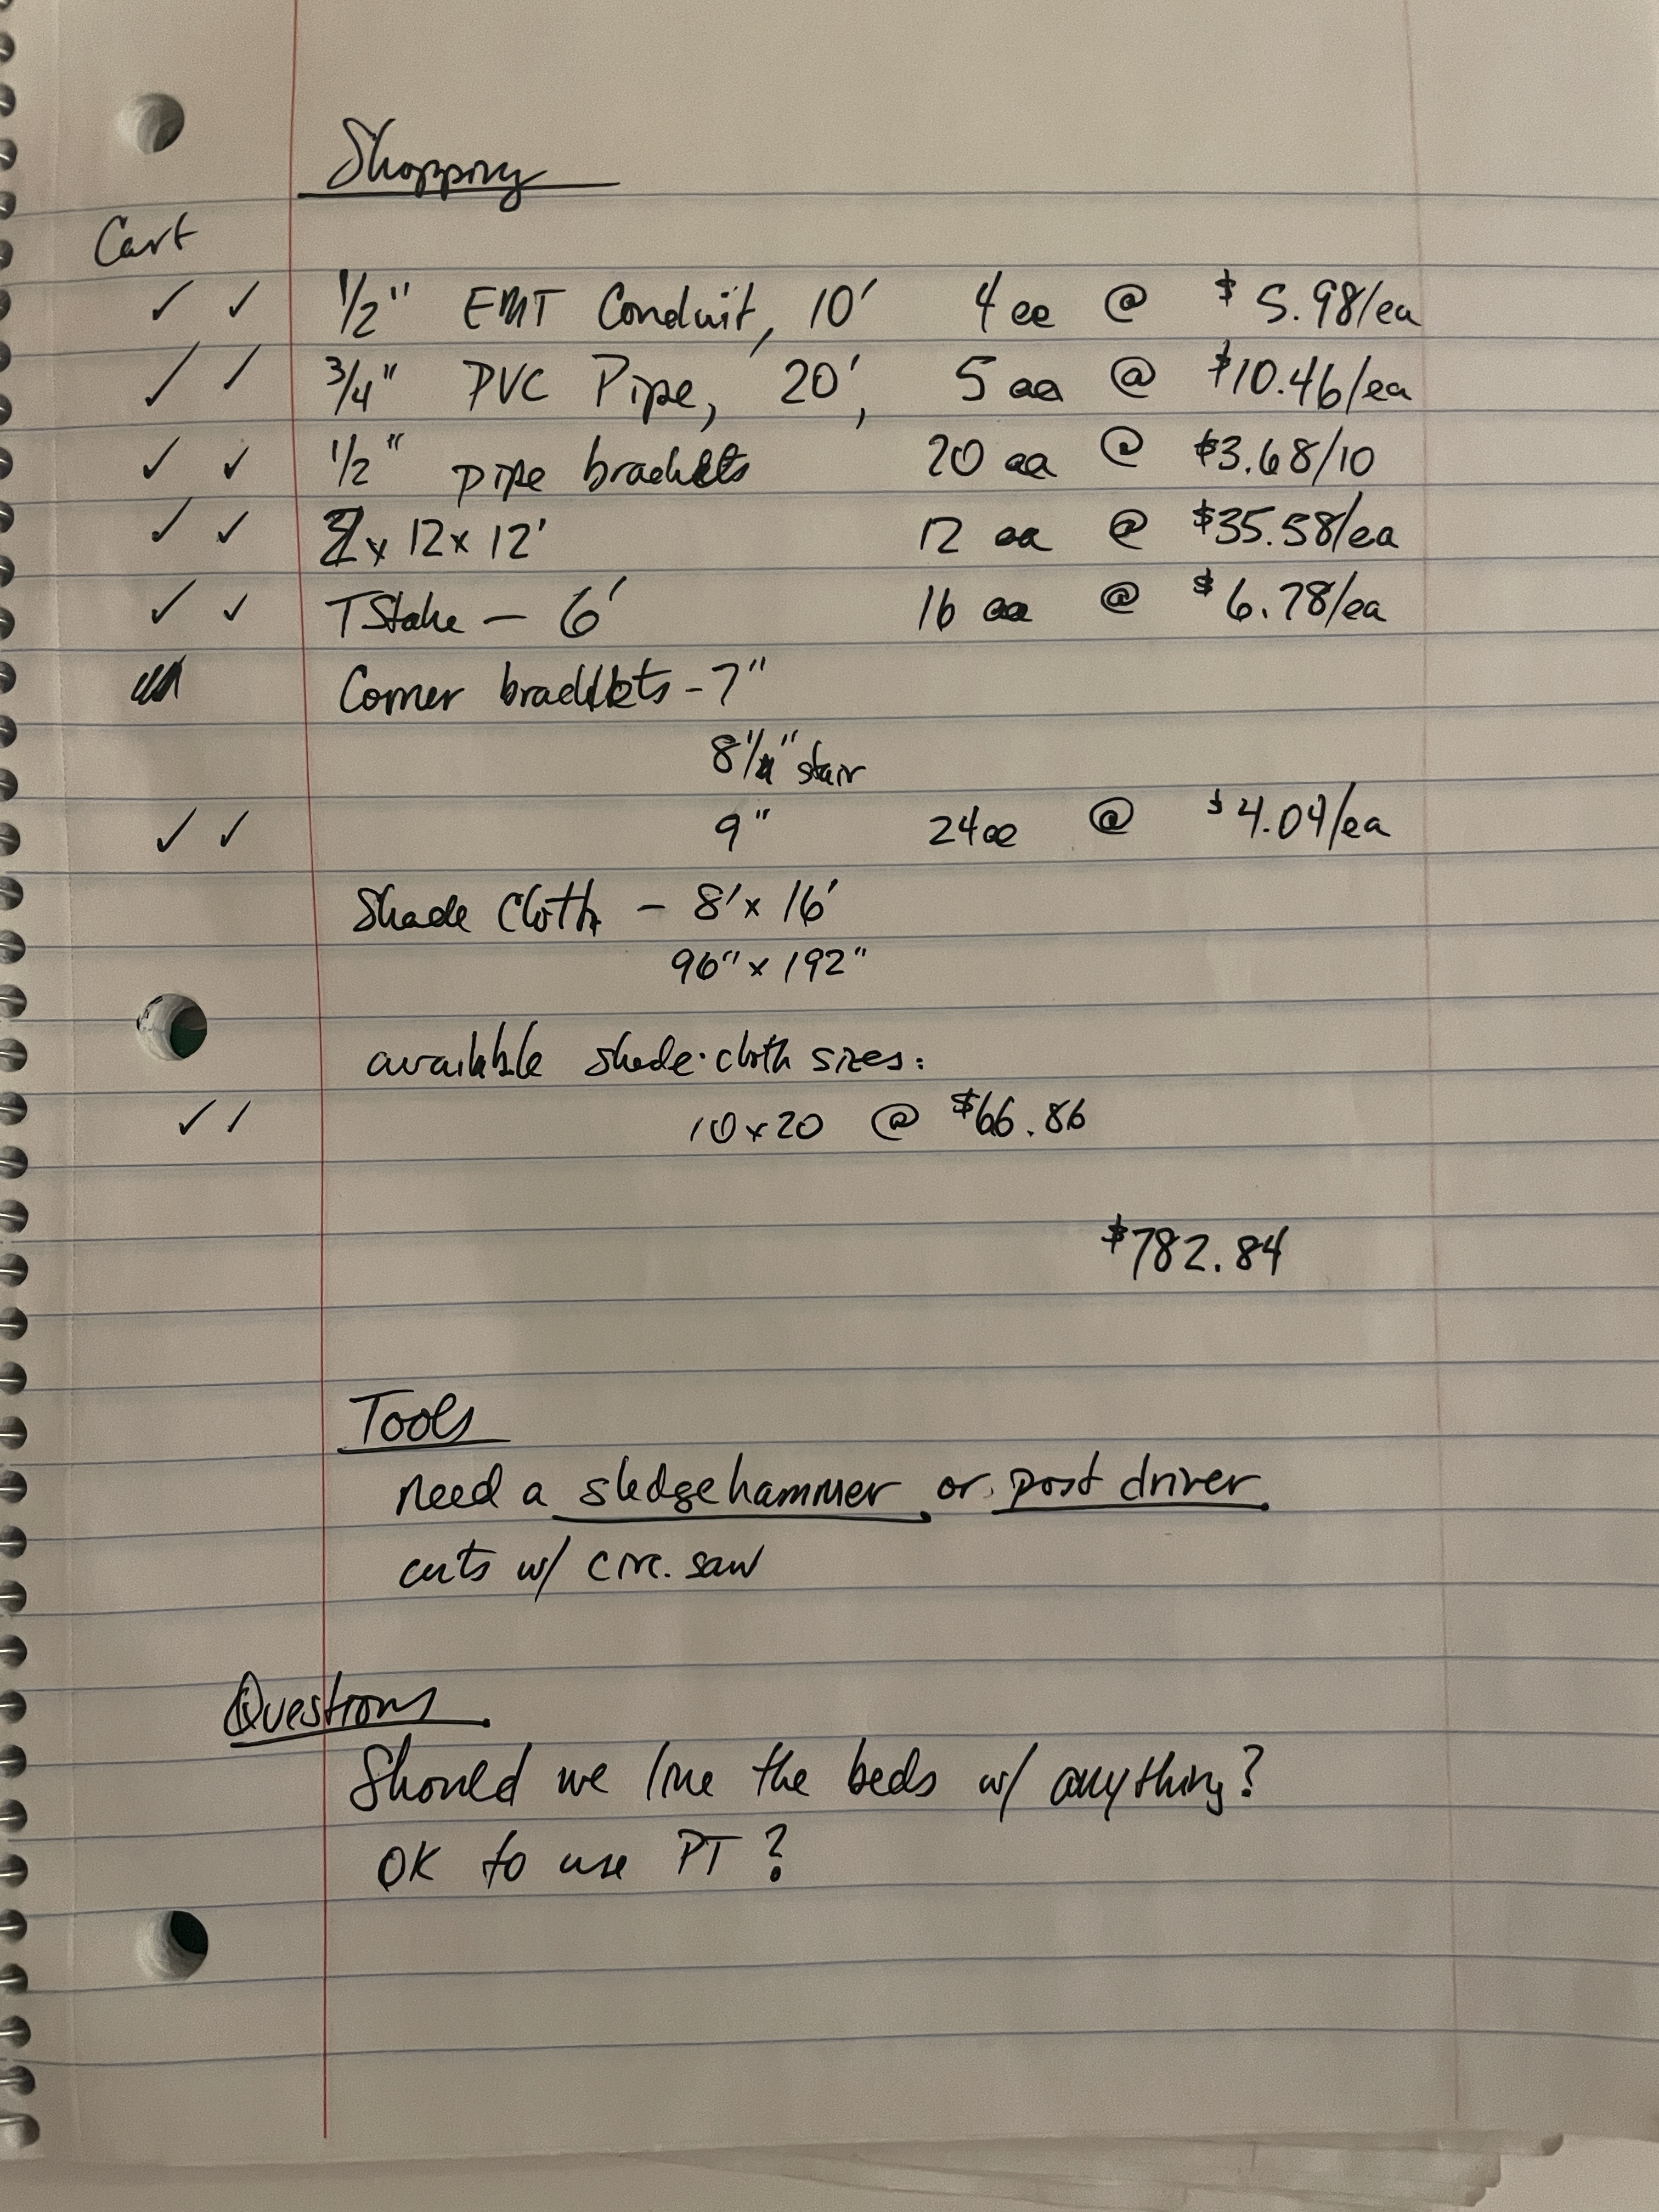 Shopping
Cart
✓ ✓ 1/2" EMT Conduit, 10' 4 ea @ $5.98/ea
✓ ✓ 3/4" PVC Pipe, 20', 5 ea @ $10.46/ea
✓ ✓ 1/2" pipe brackets 20 ea @ $3.68/10
✓ ✓ 2x12x12' 12 ea @ $35.58/ea
✓ ✓ T Stake - 6' 16 ea @ $6.78/ea
Corner brackets - 7"
8 1/4" stair
✓ ✓ 9" 24 ea @ $4.04/ea
Shade Cloth - 8' x 16'
96" x 192"
available shade cloth sizes:
✓ ✓ 10x20 @ $66.86
$782.84
Tools
need a sledgehammer or post driver
cuts w/ circ. saw
Questions
Should we line the beds w/ anything?
OK to use PT?